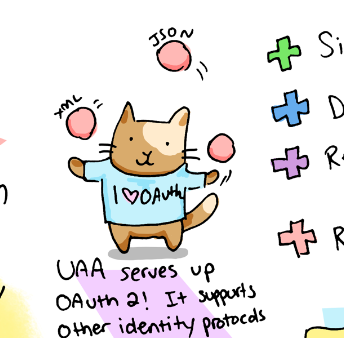 JSON
XML
I ♡ OAuth
UAA serves up
OAuth 2! It supports
Other identity protocols
Si
D
R